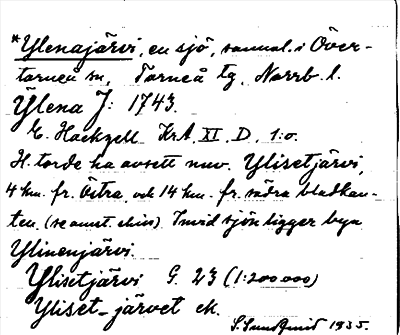 *Ylenajärvi, en sjö, sannol. i Över-
torneå sn, Torneå tg, Norrb. l.
Ÿlena J: 1743.
E. Hackzell KrA XI, D, 1:o.
H. torde ha avsett nuv. Ylisetjärvi,
4 km. fr. Östra och 14 km. fr. södra bladkan-
ten. Invid sjön ligger byn
Ylinenjärvi.
Ylisetjärvi G. 23 (1:200 000)
Yliset-järvet ek.
S. Sundqvist 1935.